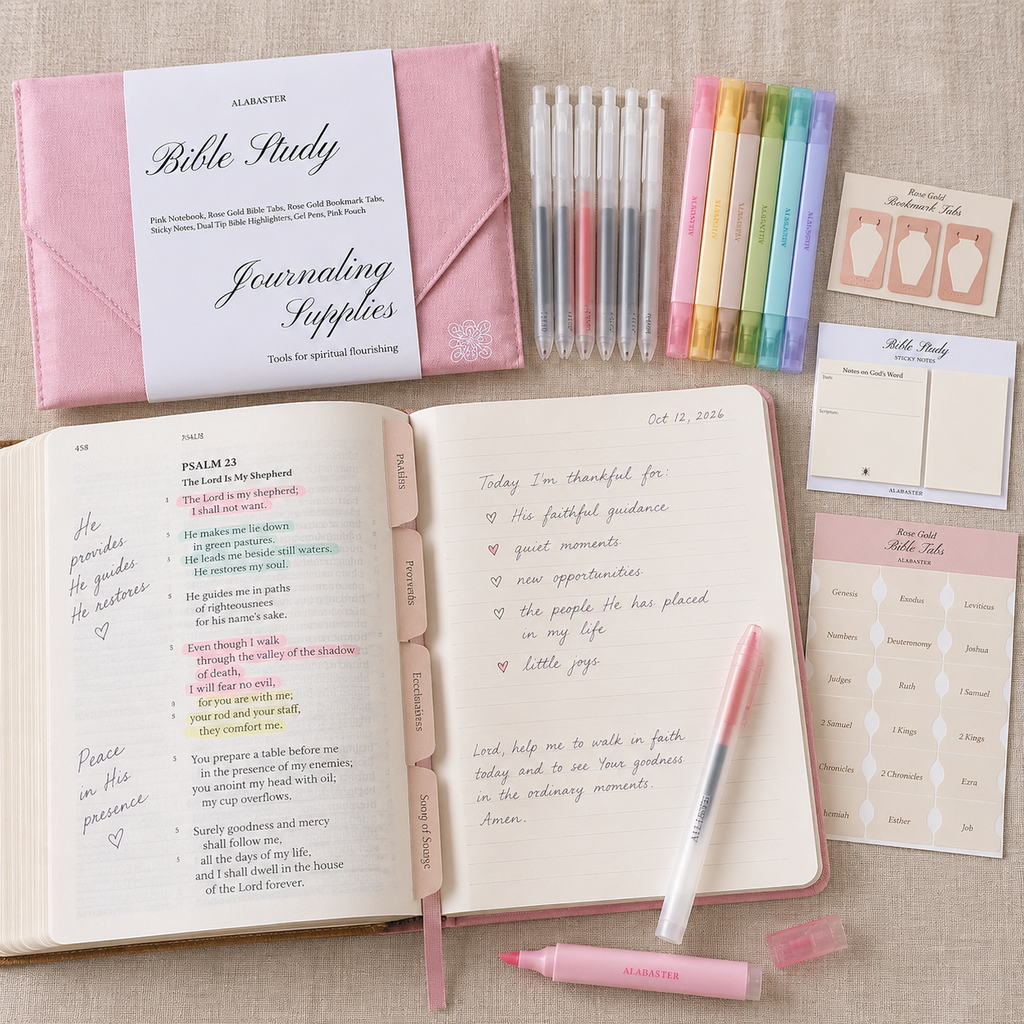 ALABASTER
Bible Study
Pink Notebook, Rose Gold Bible Tabs, Rose Gold Bookmark Tabs,
Sticky Notes, Dual Tip Bible Highlighters, Gel Pens, Pink Pouch
Journaling
Supplies
Tools for spiritual flourishing
Rose Gold
Bookmark Tabs
Bible Study
STICKY NOTES
Notes on God's Word
Date:
Scripture:
ALABASTER
Rose Gold
Bible Tabs
ALABASTER
Genesis
Exodus
Leviticus
Numbers
Deuteronomy
Joshua
Judges
Ruth
1 Samuel
2 Samuel
1 Kings
2 Kings
Chronicles
2 Chronicles
Ezra
hemiah
Esther
Job
458
PSALM 23
The Lord Is My Shepherd
The Lord is my shepherd;
I shall not want.
He makes me lie down
in green pastures.
He leads me beside still waters.
He restores my soul.
He guides me in paths
of righteousness
for his name's sake.
Even though I walk
through the valley of the shadow
of death,
I will fear no evil,
for you are with me;
your rod and your staff,
they comfort me.
You prepare a table before me
in the presence of my enemies;
you anoint my head with oil;
my cup overflows.
Surely goodness and mercy
shall follow me,
all the days of my life,
and I shall dwell in the house
of the Lord forever.
He
provides
He guides
He restores
Peace
in His
presence
Proverbs
Song of Songe
Oct 12, 2026
Today I'm thankful for:
His faithful guidance
quiet moments
new opportunities
the people He has placed
in my life
little joys
Lord, help me to walk in faith
today and to see Your goodness
in the ordinary moments.
Amen.
ALABASTER